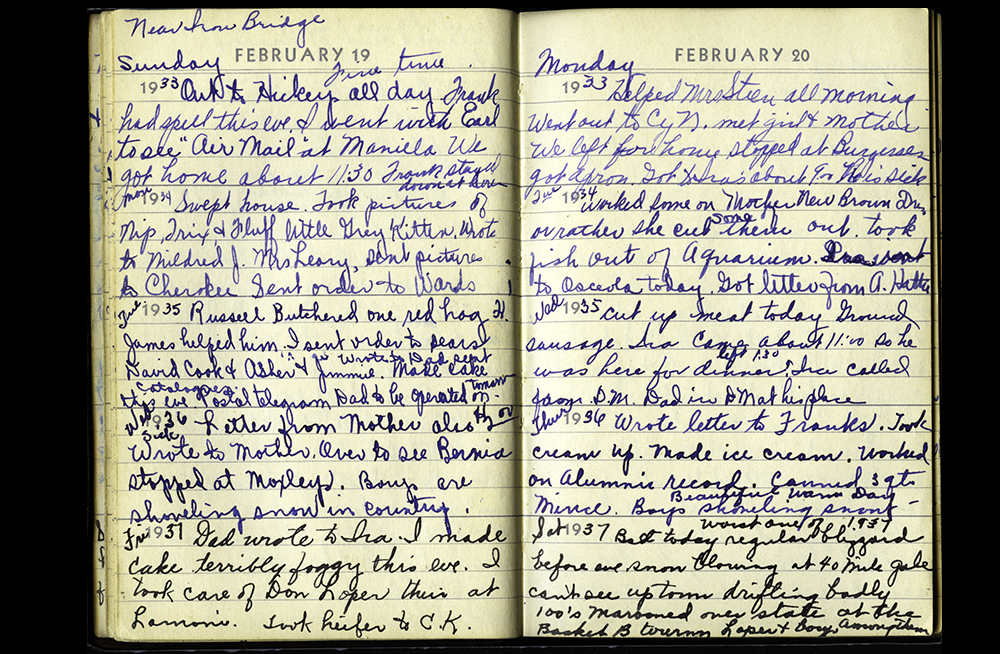 Near Iron Bridge
FEBRUARY 19
Sunday Fine time.
1933 Out to Hickeys all day Frank
had spell this eve. I went with Earl
to see "Air Mail" at Manilla We
got home about 11:30 Frank stayed
down at
Mon 1934 Swept house. Took pictures of
Nip, Trix, & Fluff little Grey Kitten. Wrote
to Mildred J. Mrs Leary, sent pictures
to Cherokee Sent order to Wards
Tue 1935 Russell Butchered one red hog H.
James helped him. I sent order to Sears
Wrote to Dad sent
David Cook & Asher & Jimmie. Made cake
Catalogues
this eve Postal telegram Dad to be operated on
Wed 1936 Letter from Mother also
Sick
Wrote to Mother. Over to see Bernia
stopped at Moxleys. Boys are
shoveling snow in country.
Fri 1937 Dad wrote to Ira. I made
cake terribly foggy this eve. I
took care of Don Loper their at
Lamoni. Took heifer to C.K.
FEBRUARY 20
Monday
1933 Helped Mrs all morning
Went out to Cy N. met girl & mother
We left for home stopped at
got apron. Got to Iras about is sick
Tue 1934 Worked some on Mother New Brown
some
or rather she cut them out. took
fish out of Aquarium. went
to Osceola today. Got letter from A. Hattie
Wed 1935 cut up meat today Ground
sausage. Ira came about 11:00 so he
left 1:30
was here for dinner. Ira called
from D.M. Dad in D M at his place
Thur 1936 Wrote letter to Franks. Took
cream up. Made ice cream. Worked
on Alumni record. Canned 3 qts
Beautiful warm Day
Mince. Boys shoveling snow
worst one of 1937
Sat 1937 Bath today regular blizzard
before eve snow blowing at 40 mile gale
can't see uptown drifting badly
100's marooned over state at the
Basket B Tourn Loper & boys among them